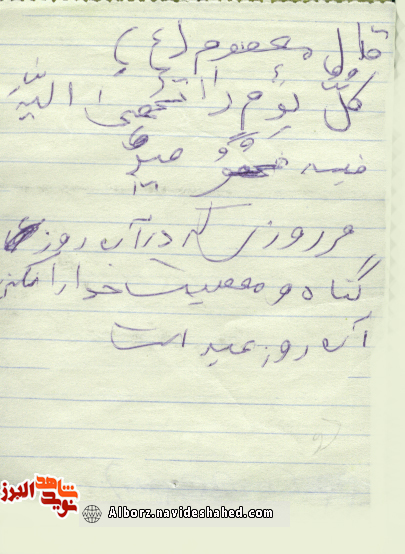 قال معصوم (ع)
کل یوم لا یُعصیٰ الله
فیه فهو عید
هر روزی که در آن روز
گناه و معصیت خدا را نکنیم
آن روز عید است
شاهد
نوید البرز
Alborz.navideshahed.com